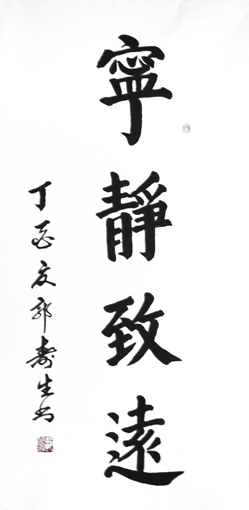 寧靜致遠
丁酉夏郭壽生書